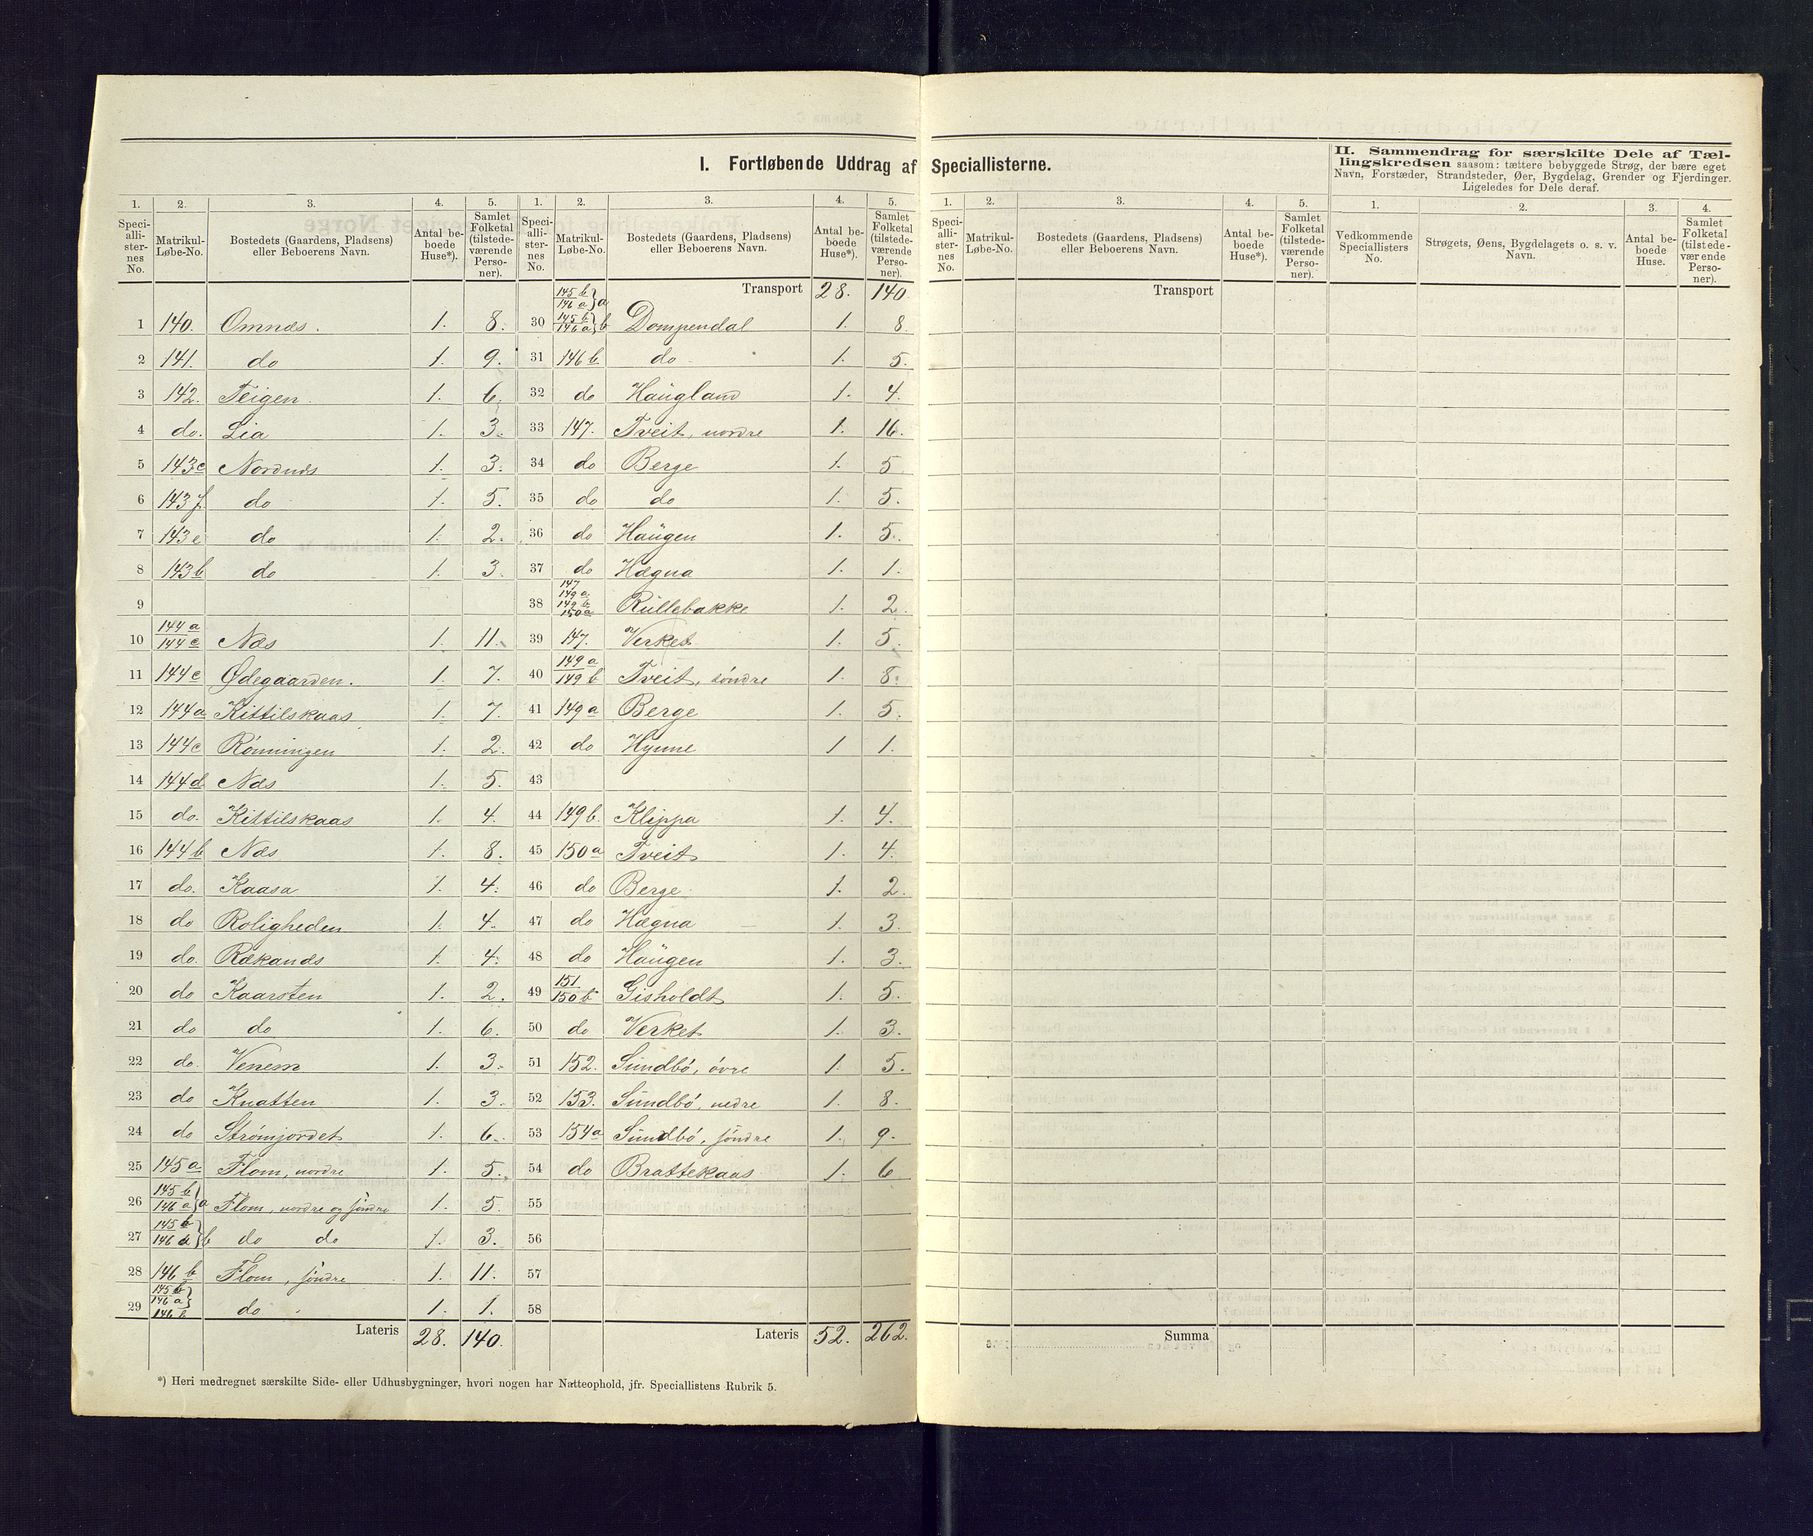 I. Fortløbende Uddrag af Speciallisterne.
II. Sammendrag for særskilte Dele af Tællingskredsen saasom: tættere bebyggede Strøg, der bære eget Navn, Forstæder, Strandsteder, Øer, Bygdelag, Grender og Fjerdinger. Ligeledes for Dele deraf.
1. 2. 3. 4. 5. 1. 2. 3. 4. 5. 1. 2. 3. 4. 5. 1. 2. 3. 4.
Speciallisternes No. Matrikul-Løbe-No. Bostedets (Gaardens, Pladsens) eller Beboerens Navn. Antal beboede Huse*). Samlet Folketal (tilstedeværende Personer).
Speciallisternes No. Matrikul-Løbe-No. Bostedets (Gaardens, Pladsens) eller Beboerens Navn. Antal beboede Huse*). Samlet Folketal (tilstedeværende Personer).
Speciallisternes No. Matrikul-Løbe-No. Bostedets (Gaardens, Pladsens) eller Beboerens Navn. Antal beboede Huse*). Samlet Folketal (tilstedeværende Personer).
Vedkommende Speciallisters No. Strøgets, Øens, Bygdelagets o. s. v. Navn. Antal beboede Huse. Samlet Folketal (tilstedeværende Personer).
1 140. Omnæs. 1. 8.
2 141. do 1. 9.
3 142. Teigen. 1. 6.
4 do. Lia 1. 3.
5 143c Nordnæs 1. 3.
6 143f do 1. 5.
7 143e do 1. 2.
8 143b do 1. 3.
9
10 144a 144c Næs 1. 11.
11 144c Ødegaarden. 1. 7.
12 144a Kittilskaas 1. 7.
13 144c Rönningen 1. 2.
14 144d Næs 1. 5.
15 do. Kittilskaas 1. 4.
16 144b Næs 1. 8.
17 do. Kaasa 1. 4.
18 do Roligheden 1. 4.
19 do. Rækands 1. 4.
20 do Kaarsten 1. 2.
21 do do 1. 6.
22 do. Venem 1. 3.
23 do Knatten 1. 3.
24 do Strömjordet 1. 6.
25 145a Flom, nordre 1. 5.
26 145b 146a } a Flom, nordre og söndre 1. 5.
27 145b 146a } b do do 1. 3.
28 146b Flom, söndre 1. 11.
29 145b 146a } 146b do 1. 1.
Lateris 28. 140.
145b 146a } a Transport 28. 140.
30 145b 146a } b Dompendal 1. 8.
31 146b do 1. 5.
32 do Haugland 1. 4.
33 147. Tveit, nordre 1. 16.
34 do Berge 1. 5
35 do do 1. 5.
36 do Haugen 1. 5.
37 do Hægna 1. 1.
38 147 149a 149b 150a Rullebakke 1. 2.
39 147. Verket 1. 5.
40 149a 149b Tveit, söndre 1. 8.
41 149a Berge 1. 5.
42 do Hynne 1 1.
43
44 149b. Klippa 1. 4.
45 150a Tveit 1. 4.
46 do Berge 1. 2.
47 do Hægna 1. 3.
48 do Haugen 1. 3.
49 151 150b Gisholdt 1. 5.
50 do Verket 1. 3.
51 152. Sundbö, övre 1. 5.
52 153. Sundbö, nedre 1. 8.
53 154a Sundbö, söndre 1. 9.
54 do Brattekaas 1. 6
55
56
57
58
Lateris 52. 262.
Transport
Summa
*) Heri medregnet særskilte Side- eller Udhusbygninger, hvori nogen har Natteophold, jfr. Speciallistens Rubrik 5.